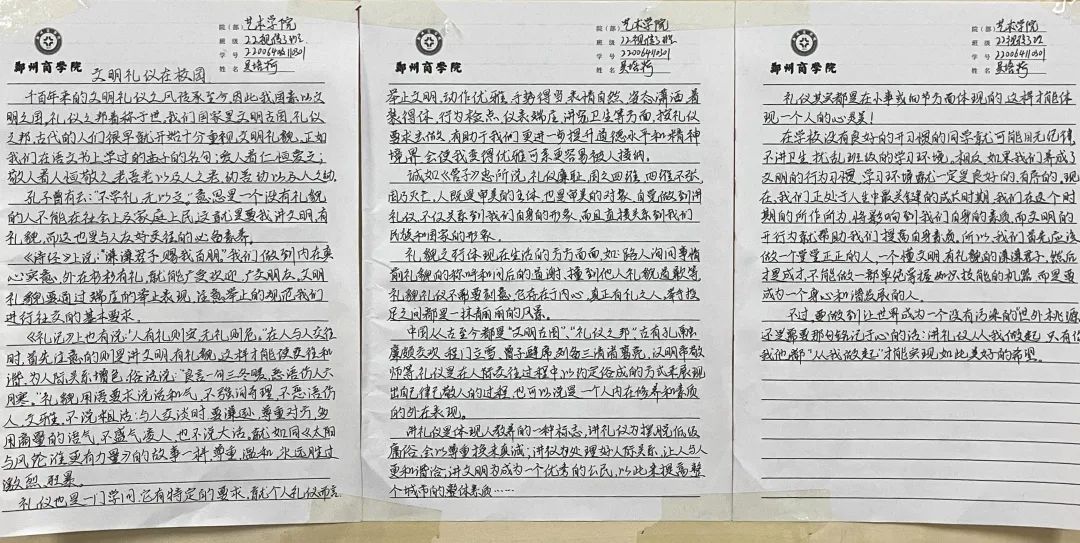 郑州商学院
院（部）艺术学院
班 级 22视传3班
学 号
姓 名 吴培柯
文明礼仪在校园
千百年来的文明礼仪之风传承至今,因此我国素以文
明之国,礼仪之邦著称于世,我们国家是文明古国,礼仪
之邦,古代的人们很早就开始十分重视文明礼貌,正如
我们在语文书上学过的孟子的名句:爱人者仁恒爱之;
敬人者人恒敬之,老吾老以及人之老,幼吾幼以及人之幼.
孔子曾有云:"不学礼,无以立."意思是一个没有礼貌
的人不能在社会上及家庭上民,这就是要我讲文明,有
礼貌,而这也是与人友好交往的必备素养.
《诗经》上说:"谦谦君子,赐我百朋."我们做到内在真
心实意,外在彬彬有礼,就能广受欢迎,广交朋友,文明
礼貌要通过端庄的举止表现,注意举止的规范,我们
进行社交的基本要求.
《礼记》上也有说:"人有礼则安,无礼则危."在人与人交往
时,首先注意的则是讲文明有礼貌,这样才能使交往和
谐,为人际关系增色,俗话说:"良言一句三冬暖,恶语伤人六
月寒."礼貌用语要求说话和气,不强词夺理,不恶语伤
人,文雅,不说粗话;与人交谈时要谦逊,尊重对方,多
用商量的语气,不盛气凌人,也不说大话.就如同《太阳
与风轮谁更有力量》的故事一样,尊重,温和,永远胜过
激烈,狂暴.
礼仪也是一门学问,它有特定的要求,就个人礼仪而言
院（部）艺术学院
班 级 22视传3班
学 号
姓 名 吴培柯
郑州商学院
举止文明,动作优雅,手势得当,表情自然,姿态潇洒,着
装得体,行为检点,仪表端庄,讲究卫生等方面,按礼仪
要求去做,有助于我们更进一步提升道德水平和精神
境界,会使我变得优雅可亲更容易被人接纳.
诚如《管子》急所说,礼仪廉耻,国之四维,四维不张,
国乃灭亡,人既是审美的主体,也是审美的对象,自觉做到讲
礼仪,不仅关系到我们自身的形象,而且直接关系到我们
民族和国家的形象.
礼貌之对体现在生活的方方面面,如:路人询问事情
前礼貌的称呼和问后的道谢,撞到他人礼貌道歉等,
礼貌礼仪不需要刻意,它存在于内心,真正有礼之人,举手投
足之间都是一抹靓丽的风景.
中国从古至今都是"文明古国","礼仪之邦",古有孔融让
廉颇交欢,程门立雪,曾子避席,刘备三请诸葛亮,汉明帝敬
师等,礼仪是在人际交往过程中以约定俗成的方式来展现
出自律己敬人的过程,也可以说是一个人内在修养和素质
的外在表现.
讲礼仪是体现人教养的一种标志,讲礼仪为摆脱低级
庸俗,会以尊重换来真诚;讲仪为处理好人际关系,让人与人
更和谐俗;讲文明为成为一个优秀的公民,以此来提高整
个城市的整体素质……
院（部）艺术学院
班 级 22视传3班
学 号
姓 名 吴培柯
郑州商学院
礼仪其实都是在小事或细节方面体现的,这样才能体
现一个人的心灵美!
在学校没有良好的开习惯的同学就可能目无纪律,
不讲卫生,扰乱班级的学习环境.相反,如果我们养成了
文明的行为习惯,学习环境就一定是良好的,有序的,现
在,我们正处于人生中最关键的成长时期,我们在这个时
期的所作所为,将影响到我们自身的素质,而文明的
开行为就帮助我们提高自身素质,所以,我们首先应该
做一个堂堂正正的人,一个懂文明,有礼貌的谦谦君子,然后
才是成才,不能做一部单纯掌握知识技能的机器,而是要
成为一个身心和谐发展的人.
不过,要做到让世界成为一个没有污染的世外桃源
还是需要那句铭记于心的话:讲礼仪,从我做起,只有你
我他都"从我做起"才能实现,如此美好的希望.